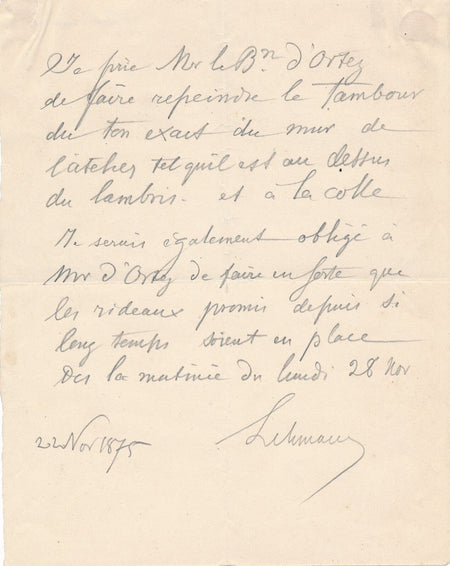 Je prie Mr le Bn d'Ortez
de faire repeindre le Tambour
du ton exact du mur de
l'atelier tel qu'il est au dessus
du lambris. et à la colle
Je serais également obligé à
Mr d'Ortez de faire en sorte que
les rideaux promis depuis si
long temps soient en place
Des la matinée du lundi 28 Nov
22 Nov 1875 Lehmann